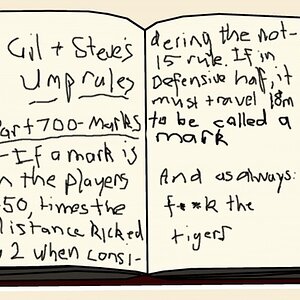 Gil + Steve's
Ump rules
art 700 - marks
- If a mark is
n the players
50, times the
istance kicked
2 when consi-
dering the not-
15 rule. If in
Defensive half, it
must travel 18m
to be called a
mark
And as always:
f**k the
tigers